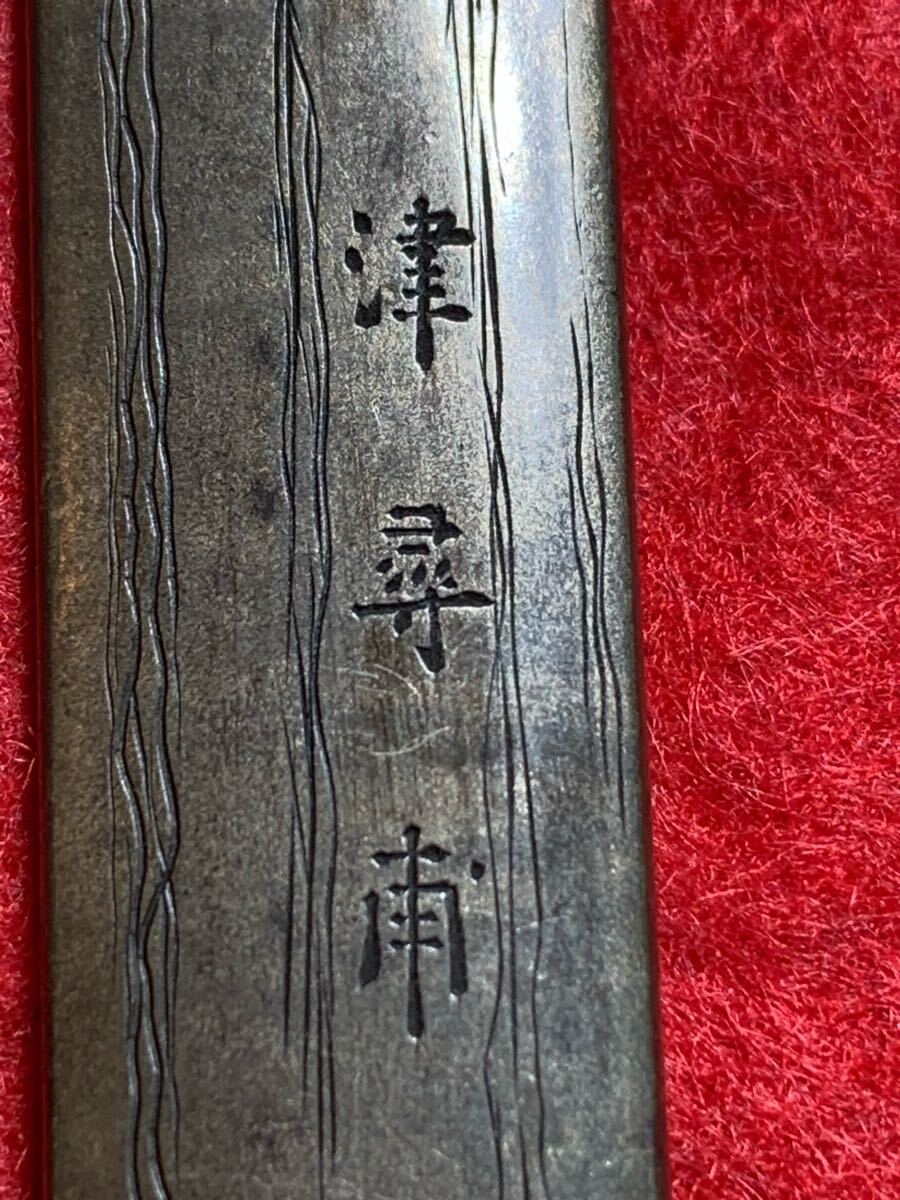 津尋甫